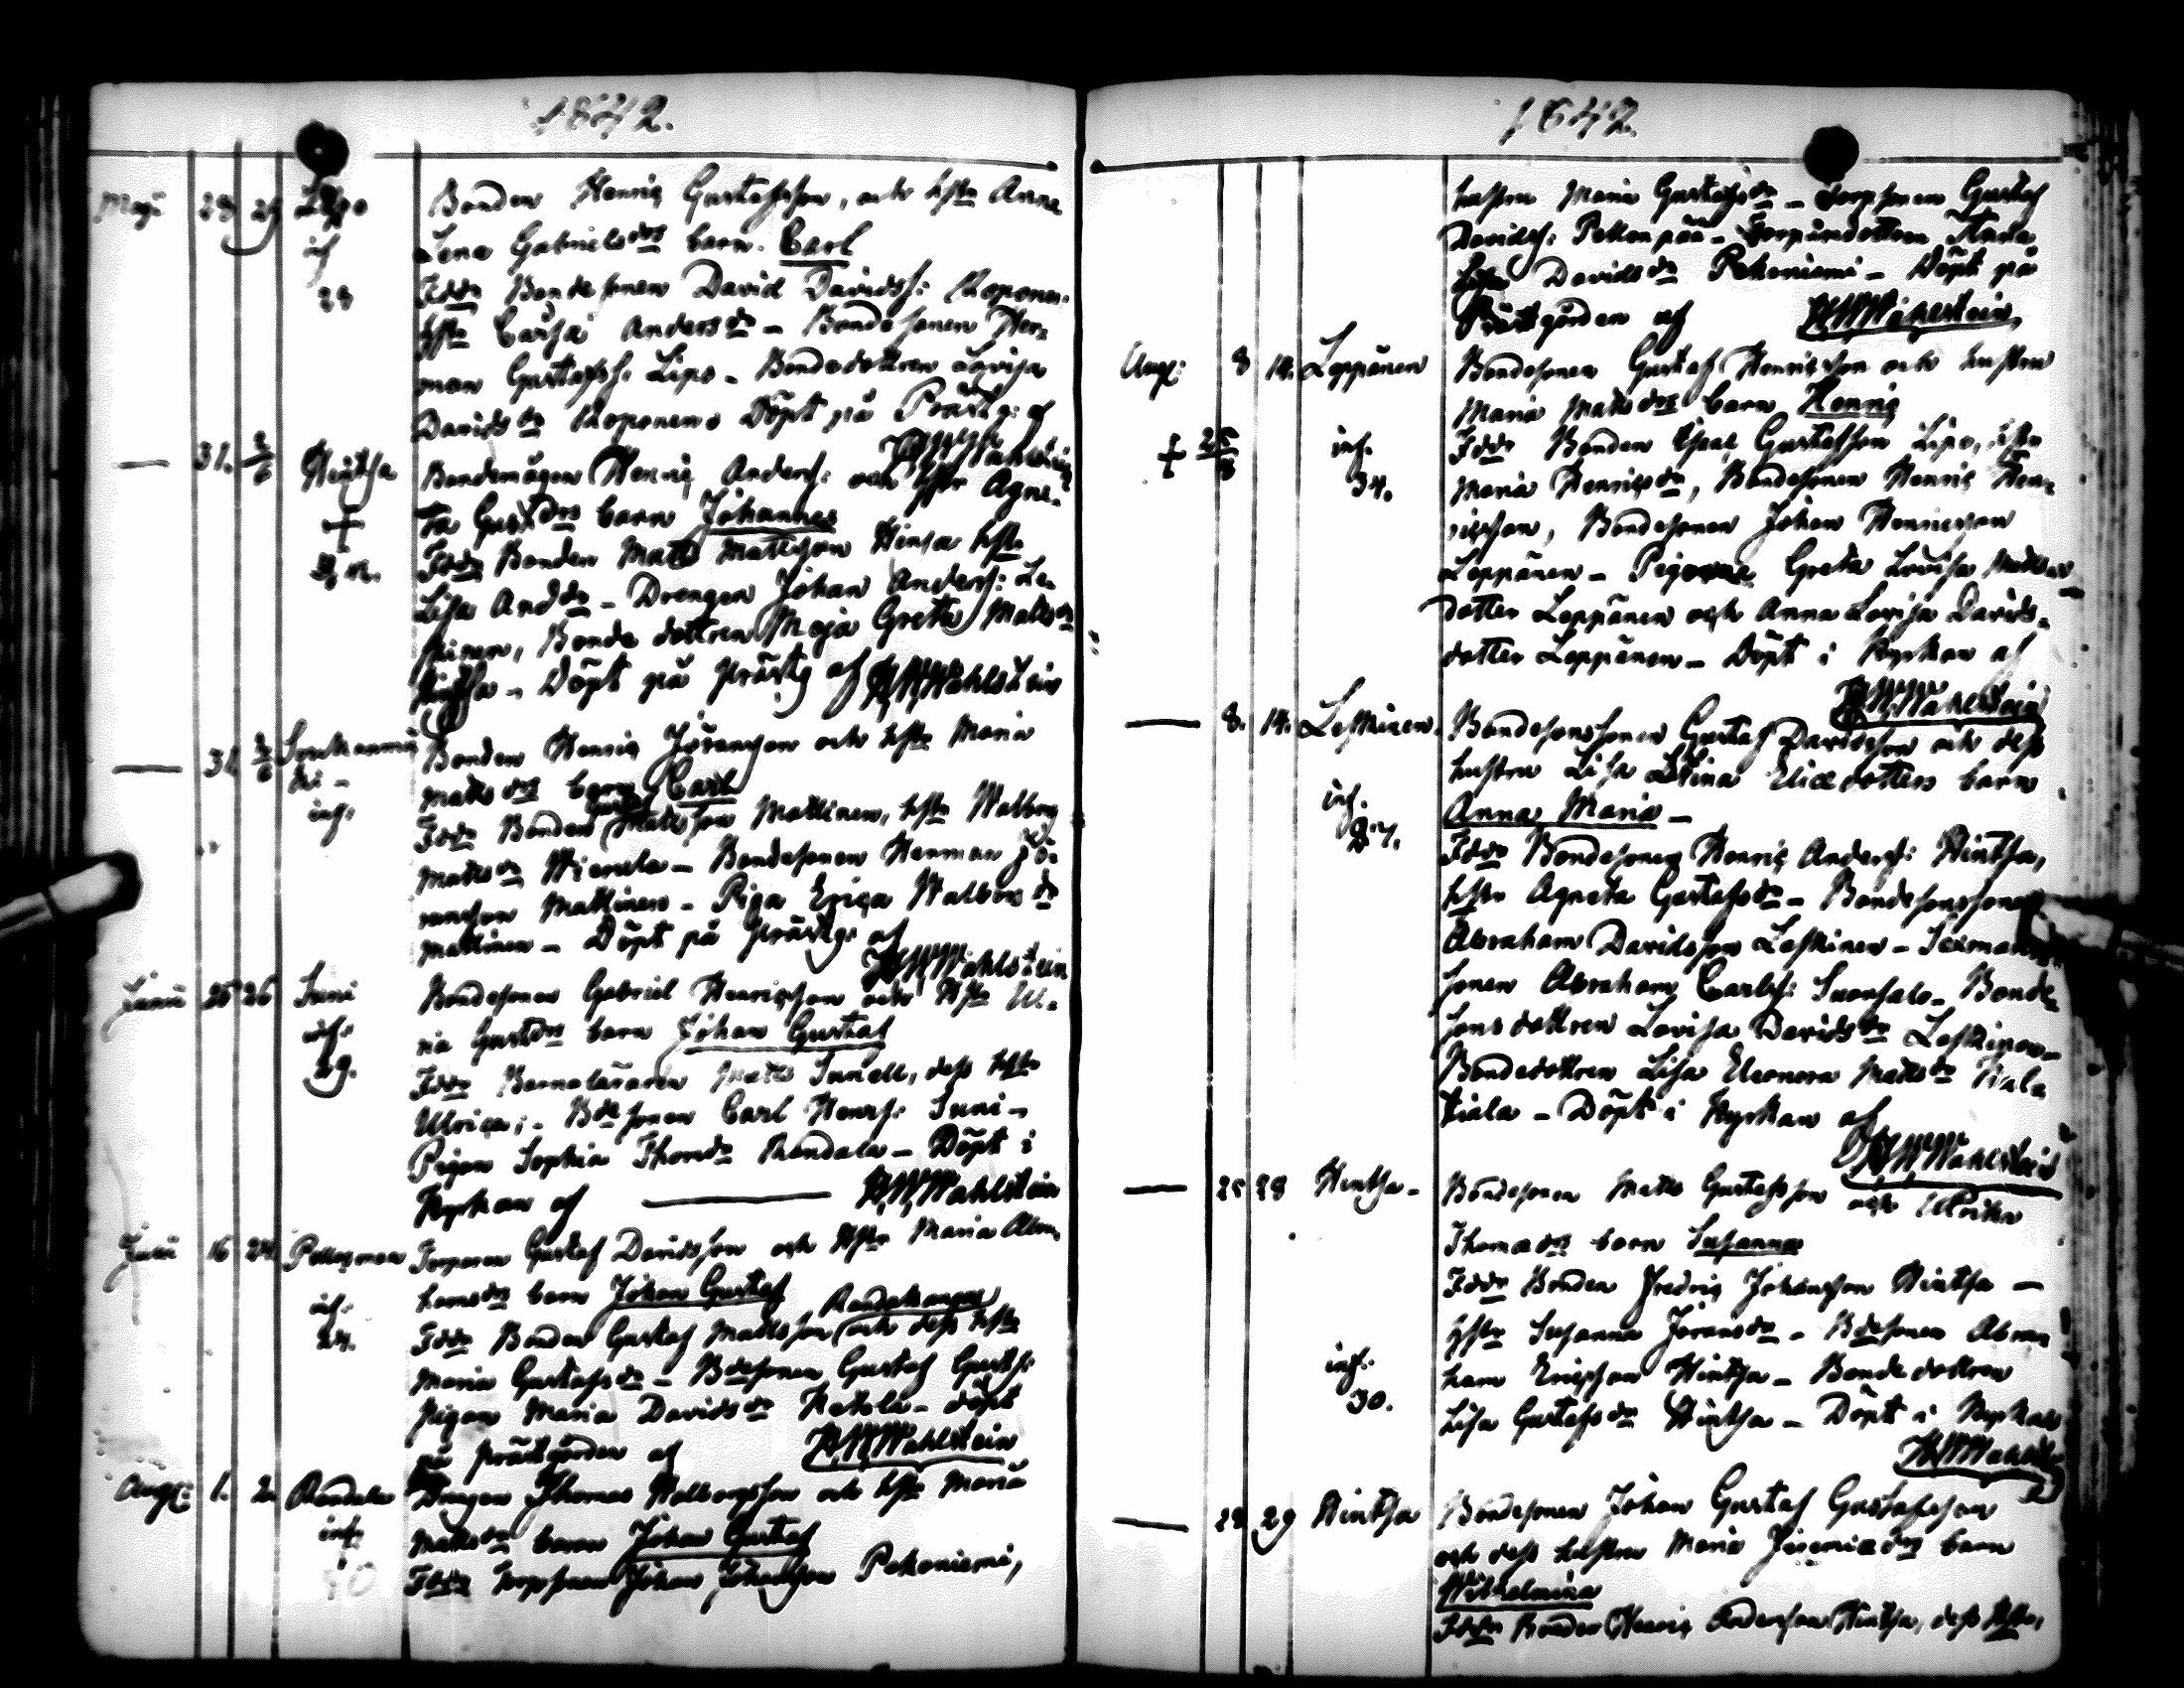 1842.
Maji 28 29 Lipo Bonden Henric Gustafsson, och hstr Anna
inf Lena Gabrielsdrs barn. Carl
28 Fddr Bondesonen David Davidss: Roponen
hstr Caisa Andersdr - Bondesonen Her-
man Gustafss: Lipo - Bondedottren Lovisa
Davidsdr Roponen. Döpt på Prästg: af
HWWahlstein
— 31. 2/6 Hintsa Bondemågen Henric Anderss: och hstr Agne-
+ ta Gustdrs barn Johannes
Fddr Bonden Matts Mattsson Hinsa hstr
Lisa Anddr - Drengen Johan Anderss: Le-
skinen, Bonde dottren Maja Greta Mattsdr
Hintsa - Döpt på prästg af HWWahlstein
— 31 2/6 Bonden Henric Jöransson och hstr Maria
inf. Matts drs barn Carl
Fddr Bonden Mattsson Mattinen, hstr Walborg
Mattsdr - Bondesonen Herman Jö-
ransson Mattinen - Piga Erica Walborg dr
Mattinen - Döpt på prästg: af
HWWahlstein
Junii 25 26 Suni Bondesonen Gabriel Henricsson och hstr Ul-
inf. ric Gustdrs barn Johan Gustaf
29. Fddr Barnaläraren Matts Sunell, dess hstr
Ulrica; - Bdesonen Carl Henrs: Suni -
Pigan Sophia Thomdr Randala - Döpt i
Kyrkan af — HWWahlstein
Junii 16 24. Torparen Gustaf Davidsson och hstr Maria Abra-
inf. hamsdrs barn Johan Gustaf
24. Fddr Bonden Gustaf Mattsson och dess hstr
Maria Gustafsdr - Bdesonen Gustaf Gustfs:
pigan Maria Davidsdr - döpt
på prästgården af HWWahlstein
Augt: 1. 2. Randala Drengen Thomas Walborgsson och hstr Maria
inf. Mattsdrs barn Johan Gustaf
Fddr Torpsonen Johan Johansson Pekoniemi,
1842.
hustru Maria Gustafsdr - Torpsonen Gustaf
Davidss: Pellonpää - Torparedottren
Lisa Davidsdr Pekoniemi - Döpt på
Prästgården af HWWahlstein,
Augt: 8 14. Leppänen Bondesonen Gustaf Henricsson och hustru
Maria Mattsdrs barn Henric
+ 25/8 inf. Fddr Bonden Isac Gustafsson Lipo, hstr
34. Maria Henricsdr, Bondesonen Henric Hen-
ricsson, Bondesonen Johan Henricsson
Leppänen - Pigorna Greta Lovisa Matts-
dotter Leppänen och Anna Lovisa Davids-
dotter Leppänen - Döpt i Kyrkan af
HWWahlstein
— 8. 14. Leskinen. Bondesonssonen Gustaf Davidsson och dess
hustru Lisa Stina Eliæ dotters barn
inf. Anna Maria -
27. Fddr Bondesonen Henric Anderss: Hintsa,
hstr Agneta Gustafsdr - Bondesonssonen
Abraham Davidsson Leskinen - Sexmans
sonen Abraham Carlss: Suonsalo - Bonde-
sonsdottren Lovisa Davidsdr Leskinen -
Bondedottren Lisa Eleonora Mattsdr
- Döpt i Kyrkan af
HWWahlstein
— 25 28 Hintsa - Bondesonen Matts Gustafsson och Ulrika
Thomædrs barn Susanna
Fddr Bonden Fredric Johansson Hintsa —
hstr Susanna Jöransdr - Bdesonen Abra-
inf. ham Ericsson Hintsa - Bonde dottren
30. Lisa Gustafsdr Hintsa - Döpt i Kyrkan
HWWahlstein
— 28 29 Hintsa Bondesonen Johan Gustaf Gustafsson
och dess hustru Maria Jeremiædrs barn
Wilhelmina
Fddr Bonden Henric Andersson Hintsa, dess hstr,